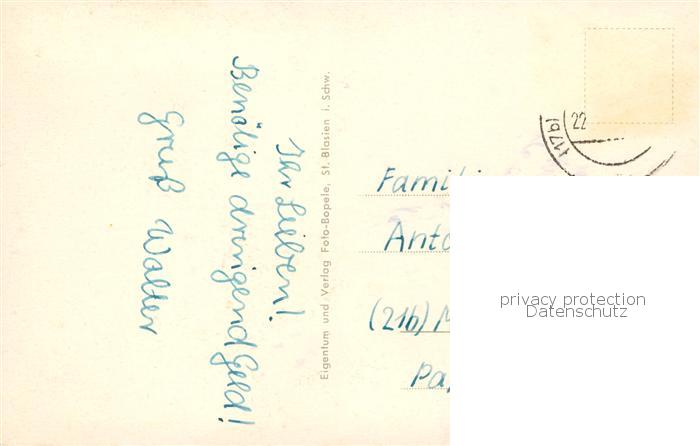 Ihr Lieben!
Benötige dringend Geld!
Gruß Walter
Eigentum und Verlag Foto-Bopele, St. Blasien i. Schw.
22
(17b)
Famili
Anto
(21b) M
Pa
privacy protection
Datenschutz